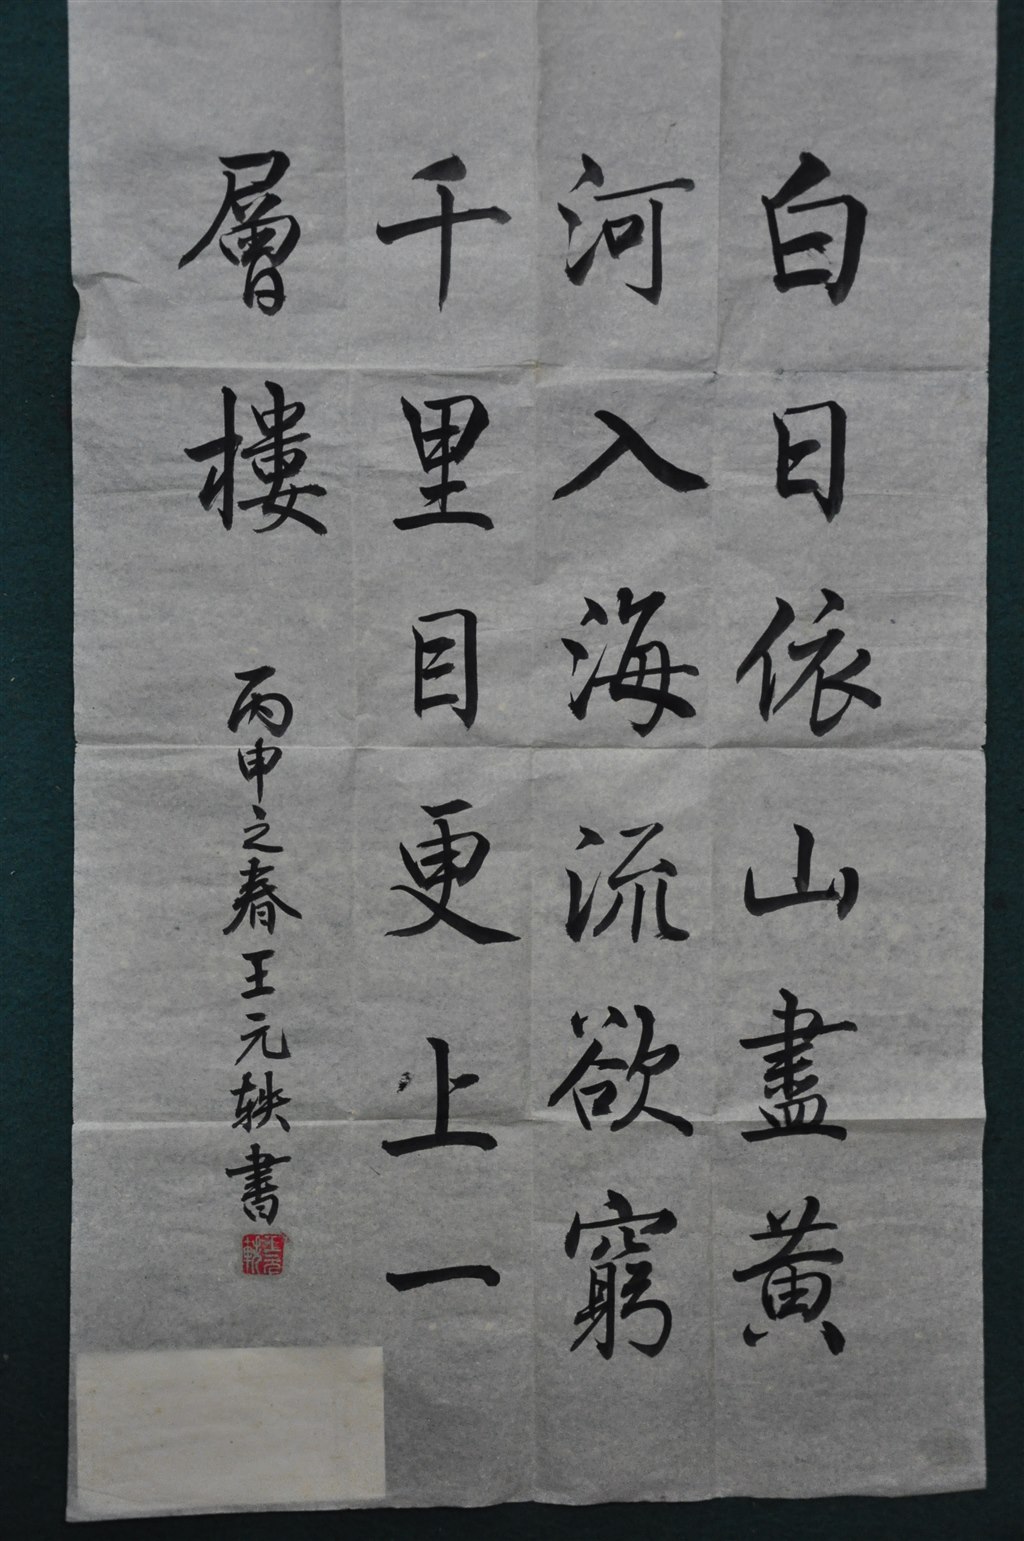 白日依山盡黃
河入海流欲窮
千里目更上一
層樓
丙申之春王元軼書